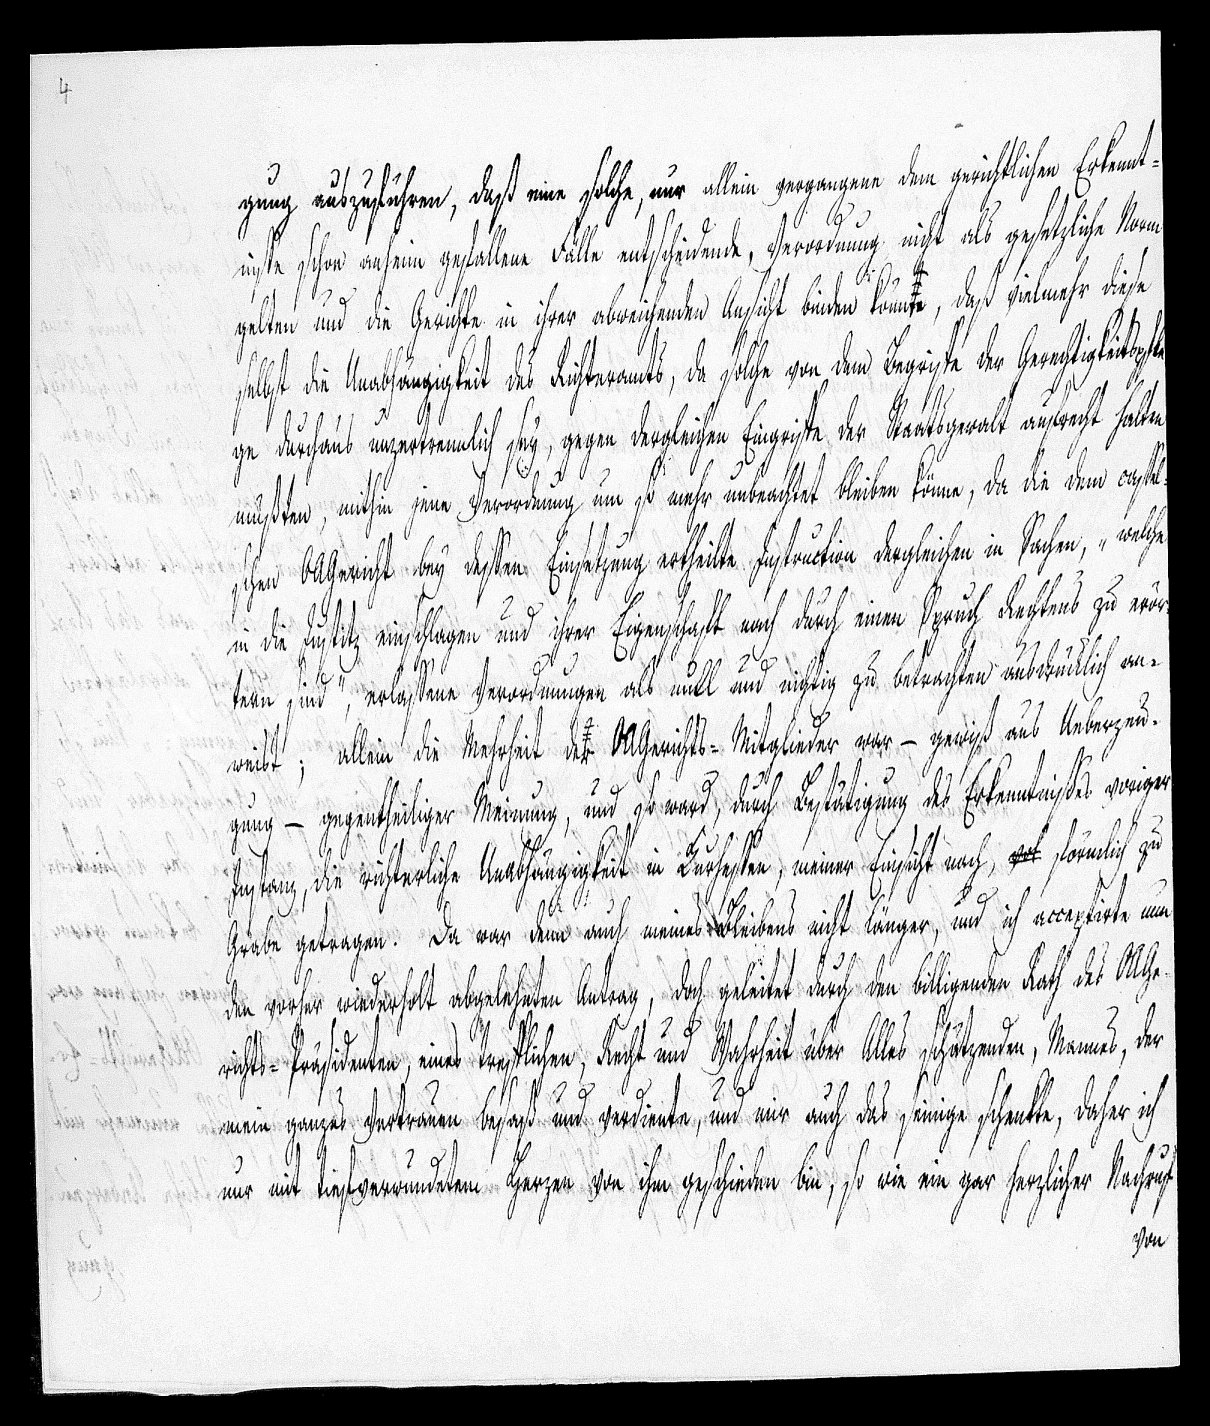 4
gung auszuführen, daß eine solche, nur allein vergangene dem gerichtlichen Erkennt-
nisse schon anheim gefallene Fälle entscheidende, Verordnung nicht als gesetzliche Norm
gelten und die Gerichte in ihrer abweichenden Ansicht binden könnte, daß vielmehr diese
selbst die Unabhängigkeit des Richteramts, da solche von dem Begriffe der Gerechtigkeitspfle-
ge durchaus unzertrennlich sey, gegen dergleichen Eingriffe der Staatsgewalt aufrecht halten
müßten, mithin jene Verordnung um so mehr unbeachtet bleiben könne, da die dem cassel-
schen OAGericht bey dessen Einsetzung ertheilte Instruction dergleichen in Sachen, „welche
in die Justitz einschlagen und ihrer Eigenschaft nach durch einen Spruch Rechtens zu erör-
tern sind", erlassene Verordnungen als null und nichtig zu betrachten ausdrücklich an-
weist; allein die Mehrheit der OAGerichts-Mitglieder war – gewiß aus Ueberzeu-
gung – gegentheiliger Meinung, und so ward, durch Bestätigung des Erkenntnißes voriger
Instanz, die richterliche Unabhängigkeit in Curhessen, meiner Einsicht nach, förmlich zu
Grabe getragen. Da war denn auch meines Bleibens nicht länger, und ich acceptirte nun
den vorher wiederholt abgelehnten Antrag, doch geleitet durch den billigenden Rath des OAGe-
richts-Präsidenten, eines trefflichen, Recht und Wahrheit über Alles schätzenden, Mannes, der
mein ganzes Vertrauen besaß und verdiente, und mir auch das seinige schenkte, daher ich
nur mit tiefverwundetem Herzen von ihm geschieden bin, so wie ein gar herzlicher Nachruf
von